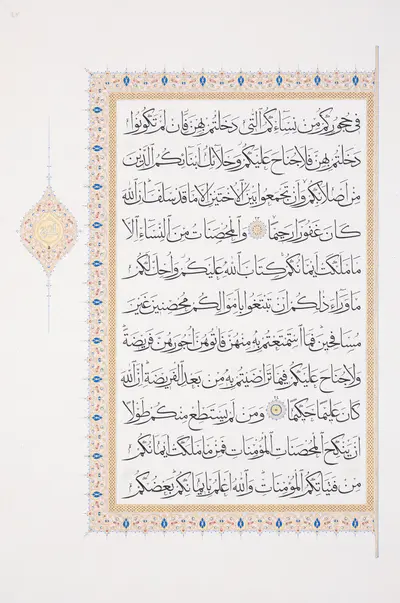 فى حجوركم من نساءكم التى دخلتم بهن فان لم تكونوا
دخلتم بهن فلا جناح عليكم وحلائل ابنائكم الذين
من اصلابكم وان تجمعوا بين الاختين الا ما قد سلف ان الله
كان غفورا رحيما والمحصنات من النساء الا
ما ملكت ايمانكم كتاب الله عليكم واحل لكم
ما وراء ذلكم ان تبتغوا باموالكم محصنين غير
مسافحين فما استمتعتم به منهن فاتوهن اجورهن فريضة
ولا جناح عليكم فيما تراضيتم به من بعد الفريضة ان الله
كان عليما حكيما ومن لم يستطع منكم طولا
ان ينكح المحصنات المؤمنات فمن ما ملكت ايمانكم
من فتياتكم المؤمنات والله اعلم بايمانكم بعضكم